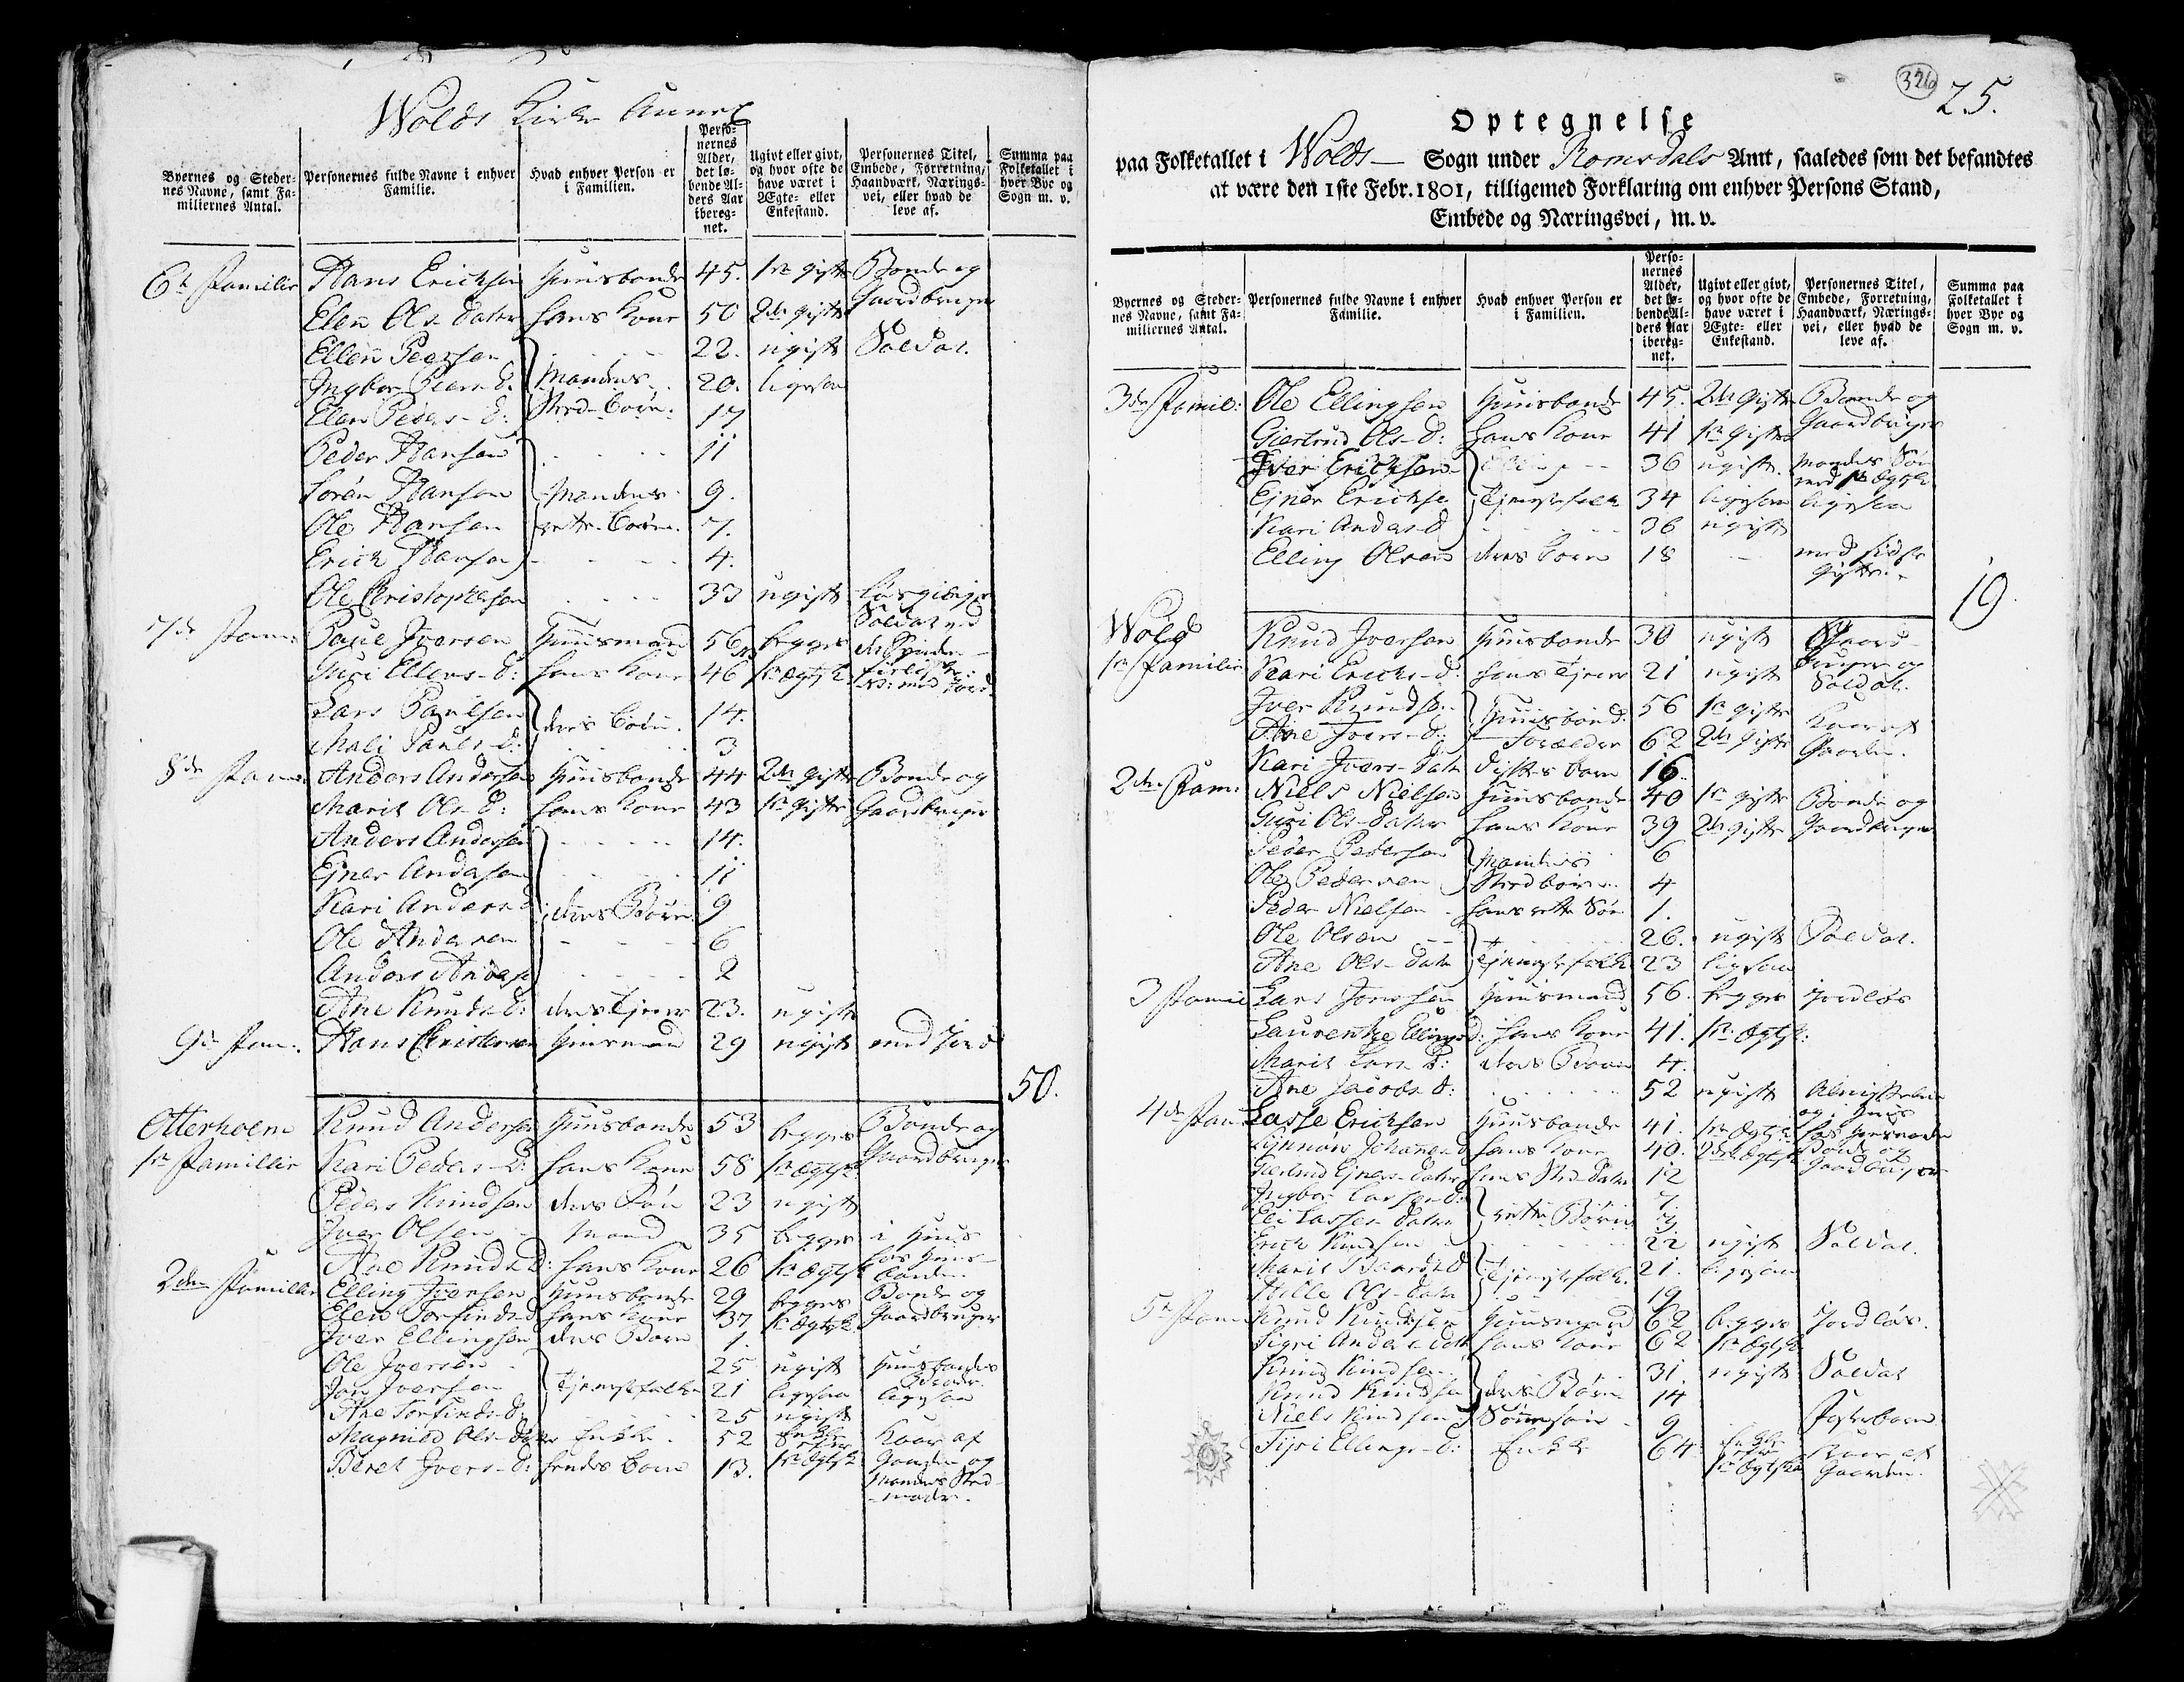 Wolds Kirke Annex
Byernes og Steder-
nes Navne, samt Fa-
miliernes Antal.
Personernes fulde Navne i enhver
Familie.
Hvad enhver Person er
i Familien.
Perso-
nernes
Alder,
det lø-
bende Al-
ders Aar
ibereg-
net.
Ugivt eller givt,
og hvor ofte de
have været i
Ægte- eller
Enkestand.
Personernes Titel,
Embede, Forretning,
Haandværk, Nærings-
vei, eller hvad de
leve af.
Summa paa
Folketallet i
hver Bye og
Sogn m. v.
6te Familie Hans Erichsen Huusbonde 45. 1ste gift Bonde og
Elen Ols-Dater hans Kone 50 2den gift Gaardbruger
Peersen 22. ugift Soldat.
Ingbor Peers-D. Mandens 20. ligesaa
Elen Peders-D: Sted-børn. 17
Peder Hansen 11
Sørén Hansen Mandens 9.
Ole Hansen rette børn. 7.
Erich Hansen 4.
Ole Christophersen 33 ugift
7de Fam: Poul Iversen Huusmand 56 begges
Guri Ellens-D: hans Kone 46 1ste Ægtsk.
Lars Poulsen deres Børn. 14.
Mali Pouls-D: 3
8de Fam: Anders Andersen Huusbonde 44 2den gift Bonde og
Marit Ols-D: hans Kone 43 1ste gift Gaardbruger
Anders Andersen 14.
Ejner Andersen 11
Kari Anders-D deres Børn 9
Ole Andersen 6
Anders Anders: 2
Ane Knuds-D: deres tjener 23. ugift
9de Fam: Hans Christensen Huusmand 29 ugift med Jord
50.
Otterholm Knud Andersen Huusbonde 53 begges Bonde og
1ste Familie Kari Peders-D: hans Kone 58 1ste Ægtsk: Gaardbruger
Peder Knudsen deres Søn 23 ugift
Iver Olsen Mand 35 begges i Huus
Ane Knuds-D: hans Kone 26 1ste Ægtsk hos Huus-
bonden
2den Familie Elling Iversen Huusbonde 29 begges Bonde og
Elen Torfinds-D hans Kone 37 1ste Ægtsk Gaardbruger
Iver Ellingsen deres Barn 1.
Ole Iversen 25 ugift Huusbondes
Brødre
Jon Iversen Tjenestefolk 21 ligesaa ligesaa
Ane Torfinds-D: 25 ugift
Magnild Ols-Dater Enke 52 Enke efter Kaar af
Beret Ivers-D: hendes barn 13. 1ste Ægtsk Gaarden og
Mandens Sted-
moder.
326
25.
Optegnelse
paa Folketallet i Wolds Sogn under Romsdals Amt, saaledes som det befandtes
at være den 1ste Febr. 1801, tilligemed Forklaring om enhver Persons Stand,
Embede og Næringsvei, m. v.
Byernes og Steder-
nes Navne, samt Fa-
miliernes Antal.
Personernes fulde Navne i enhver
Familie.
Hvad enhver Person er
i Familien.
Perso-
nernes
Alder,
det lø-
bende Al-
ders Aar
ibereg-
net.
Ugivt eller givt,
og hvor ofte de
have været i
Ægte- eller
Enkestand.
Personernes Titel,
Embede, Forretning,
Haandværk, Nærings-
vei, eller hvad de
leve af.
Summa paa
Folketallet i
hver Bye og
Sogn m. v.
3die Famil: Ole Ellingsen Huusbonde 45. 2den gift Bonde og
Giertrud Ols-D: hans Kone 41 1ste gift Gaardbruger
Iver Erichsen 36 ugift Mandens Søn
med 1ste Ægtsk
Ejner Erichse Tjenestefolk 34 ligesaa ligesaa
Kari Anders-D 36 ugift
Elling Olsen deres barn 18 med sidste
gifte.
19
Wold Knud Iversen Huusbonde 30 ugift Gaard-
1ste Familie Kari Erichs-D: hans tjener 21 ugift bruger og
Soldat.
Iver Knudsen Huusbond. 56 1ste gift Kaar af
Ane Ivers-D: Forældre 62 2den gift Gaarden.
Kari Ivers-Dater barn 16
2den Fam: Niels Nielsen Huusbonde 40 1ste gift Bonde og
Guri Ols-Dater hans Kone 39 2den gift Gaardbruger
Peder Pedersen Mandens 6
Ole Pedersen Stedbørn 4
Peder Nielsen hans rette Søn 1.
Ole Olsen 26. ugift Soldat.
Ane Ols-Dater Tjenestefolk 23 ligesaa
3 Famil Lars Jonsen Huusmand 56. begges jordløs
Laurentze Ellings-D: hans Kone 41. 1ste Ægtsk:
Marit Lars-D: deres Barn 4.
Ane Jacobs-D: 52 ugift Almisselem
og i Huus
4de Fam Lasse Erichsen Huusbonde 41. 1ste Ægtsk hos
Johans-D hans Kone 40. 2det Ægtsk Bonde og
Giertrud Ejners-Dater hans Sted-Dater 12 Gaardbruger
Ingbor Lasses-D: 7
Eli Lasses-Dater rette Børn
Erich Knudsen 22 ugift Soldat.
Marit Tjenestefolk. 21. ligesaa
Ols-Dater 19
5te Fam Knud Knudsen Huusmand 62 begges Jordløs.
Sigri Anders-Dater hans Kone 62 1ste Ægtsk
Knud Knudsen 31. ugift Soldat
Knud Knudsen deres Børn 14
Niels Knudsen Sønnesøn 9 Fosterbarn
Ellings-D: Enke 64 Enke efter Kaar af
1ste Ægtska Gaarden.